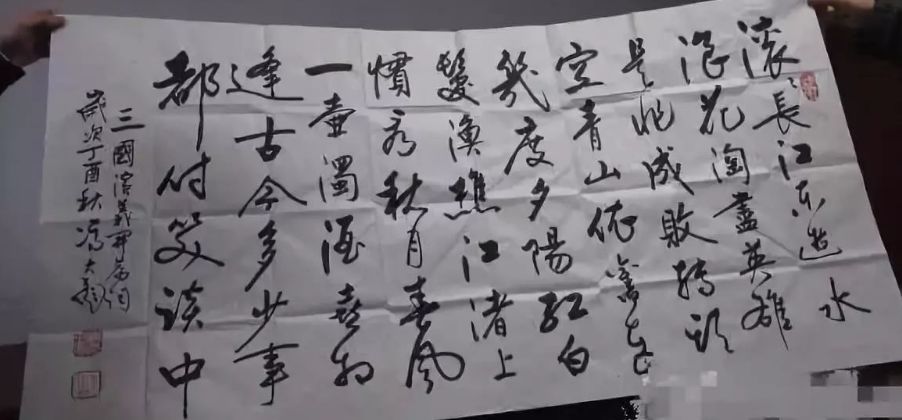 滚〻長江东逝水
浪花淘盡英雄
是非成敗轉頭
空青山依舊在
幾度夕陽红白
髮漁樵江渚上
慣看秋月春風
一壶濁酒喜相
逢古今多少事
都付笑談中
三國演義词
歲次丁酉秋馮大